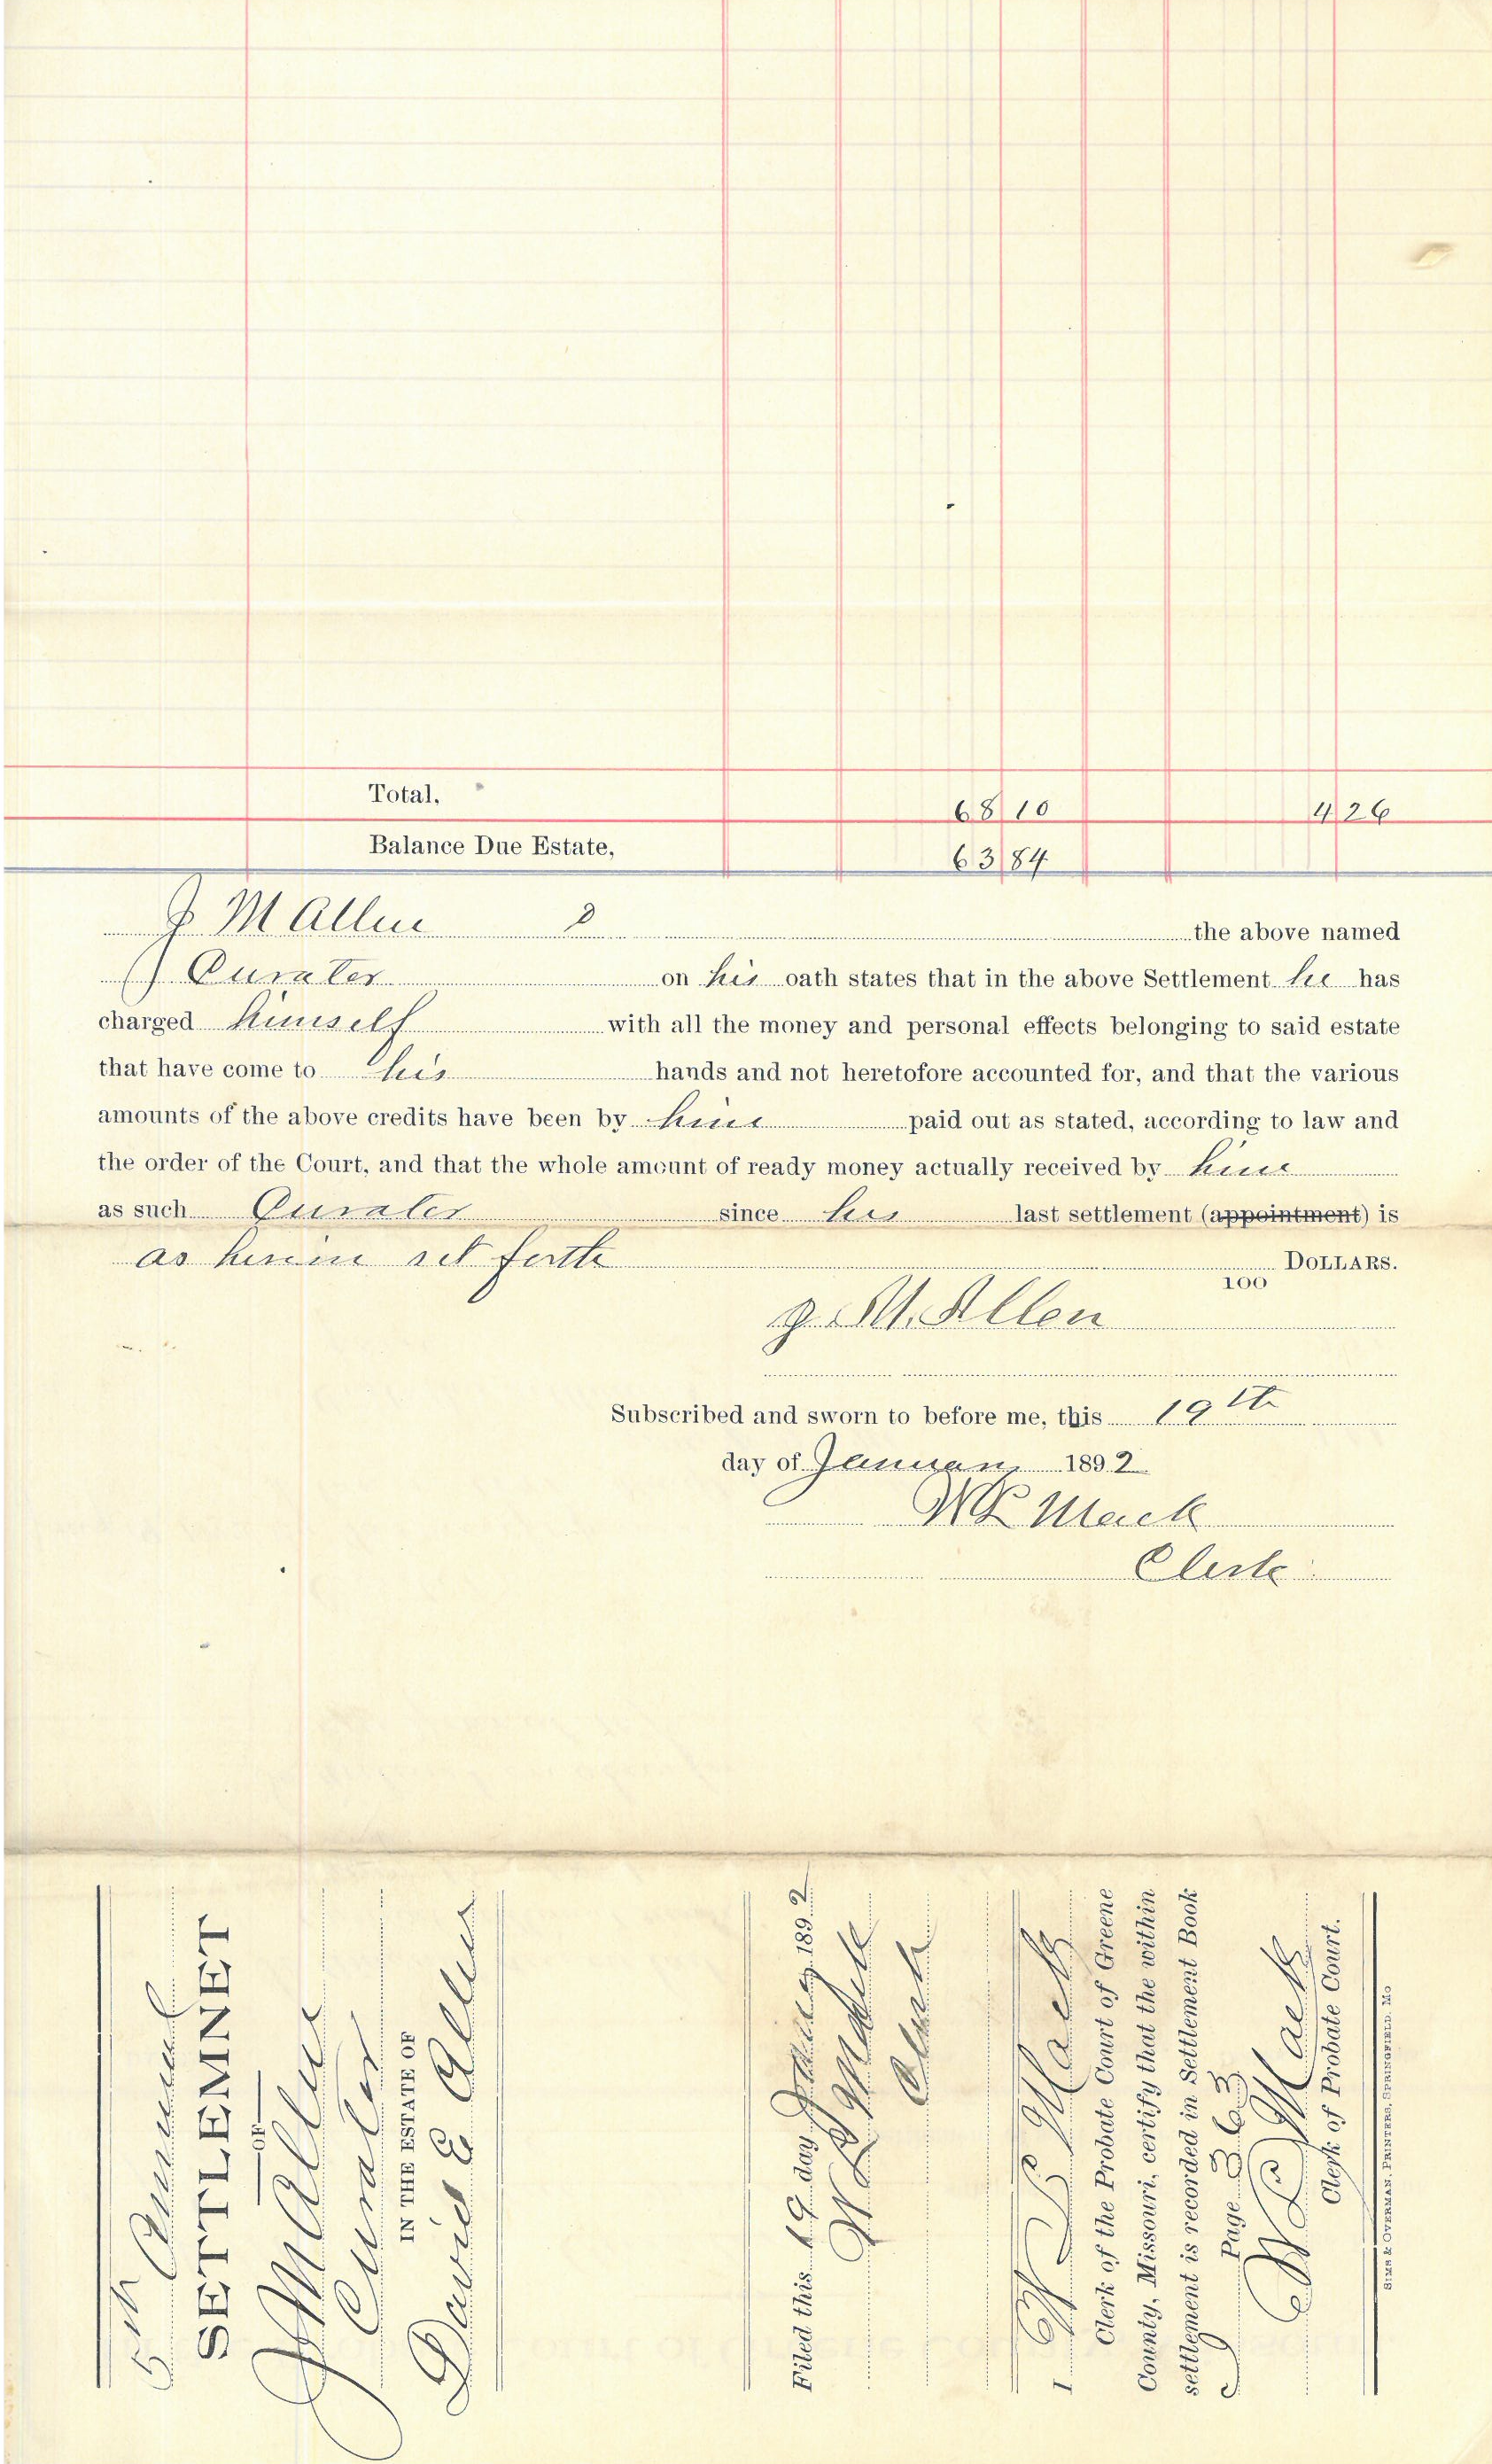 Total, 68 10 4 26
Balance Due Estate, 63 84
J M Allen the above named
Curator on his oath states that in the above Settlement he has
charged himself with all the money and personal effects belonging to said estate
that have come to his hands and not heretofore accounted for, and that the various
amounts of the above credits have been by him paid out as stated, according to law and
the order of the Court, and that the whole amount of ready money actually received by him
as such Curator since his last settlement (appointment) is
as herein set forth DOLLARS.
100
J. M. Allen
Subscribed and sworn to before me, this 19th
day of January 1892
W L Mack
Clerk
5th Annual
SETTLEMNET
OF
J M Allen
Curator
IN THE ESTATE OF
David E Allen
Filed this 19 day January 1892
W L Mack
Clerk
I W L Mack
Clerk of the Probate Court of Greene
County, Missouri, certify that the within
settlement is recorded in Settlement Book
J Page 363
W L Mack
Clerk of Probate Court.
SIMS & OVERMAN, PRINTERS, SPRINGFIELD, MO